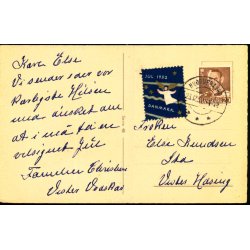 Kære Else
Vi sender den vor
kærligste Hilsen
med ønsket om
at i må få en
velsignet Jul
Familien Christensen
Vester
JUL 1952
DANMARK
Frøken
Else Knudsen
Vester Hassing